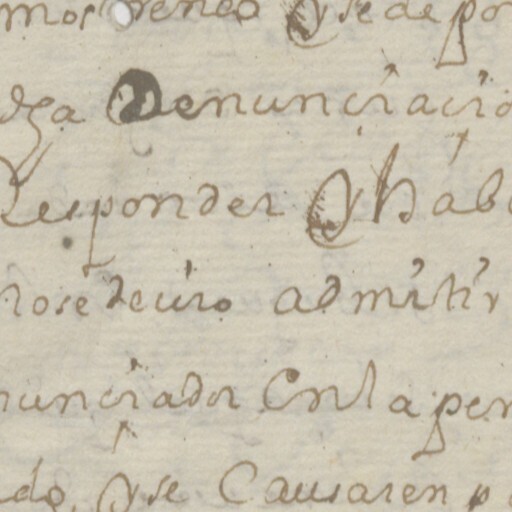 y se de po
dha Denunciacio
Responder y hab
rose deviro admitir
nunciador En la pen
do, y se Causaren p